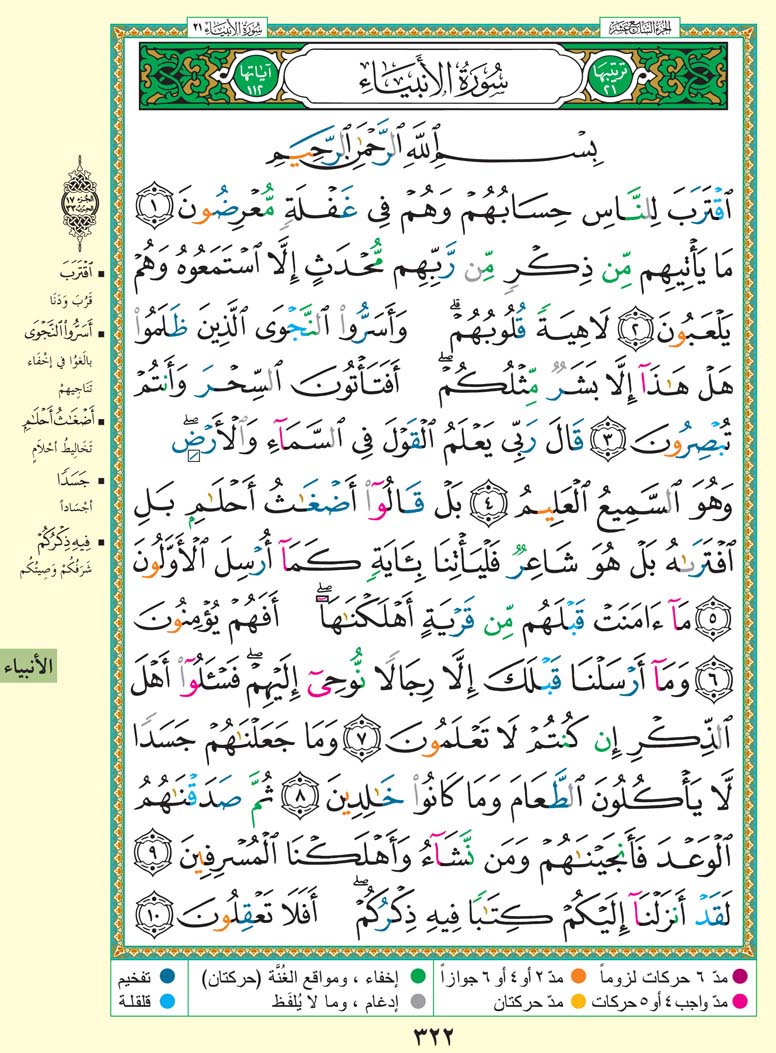 الجزء السابع عشر
سورة الأنبياء ٢١
ترتيبها ٢١
سُورَةُ الأَنبِيَاءِ
آياتها ١١٢
بِسْمِ ٱللَّهِ ٱلرَّحْمَٰنِ ٱلرَّحِيمِ
ٱقْتَرَبَ لِلنَّاسِ حِسَابُهُمْ وَهُمْ فِى غَفْلَةٍ مُّعْرِضُونَ ١
مَا يَأْتِيهِم مِّن ذِكْرٍ مِّن رَّبِّهِم مُّحْدَثٍ إِلَّا ٱسْتَمَعُوهُ وَهُمْ
يَلْعَبُونَ ٢ لَاهِيَةً قُلُوبُهُمْ ۗ وَأَسَرُّوا۟ ٱلنَّجْوَى ٱلَّذِينَ ظَلَمُوا۟
هَلْ هَٰذَآ إِلَّا بَشَرٌ مِّثْلُكُمْ ۖ أَفَتَأْتُونَ ٱلسِّحْرَ وَأَنتُمْ
تُبْصِرُونَ ٣ قَالَ رَبِّى يَعْلَمُ ٱلْقَوْلَ فِى ٱلسَّمَآءِ وَٱلْأَرْضِ ۖ
وَهُوَ ٱلسَّمِيعُ ٱلْعَلِيمُ ٤ بَلْ قَالُوٓا۟ أَضْغَٰثُ أَحْلَٰمٍۭ بَلِ
ٱفْتَرَىٰهُ بَلْ هُوَ شَاعِرٌ فَلْيَأْتِنَا بِـَٔايَةٍ كَمَآ أُرْسِلَ ٱلْأَوَّلُونَ
٥ مَآ ءَامَنَتْ قَبْلَهُم مِّن قَرْيَةٍ أَهْلَكْنَٰهَآ ۖ أَفَهُمْ يُؤْمِنُونَ
٦ وَمَآ أَرْسَلْنَا قَبْلَكَ إِلَّا رِجَالًا نُّوحِىٓ إِلَيْهِمْ ۖ فَسْـَٔلُوٓا۟ أَهْلَ
ٱلذِّكْرِ إِن كُنتُمْ لَا تَعْلَمُونَ ٧ وَمَا جَعَلْنَٰهُمْ جَسَدًا
لَّا يَأْكُلُونَ ٱلطَّعَامَ وَمَا كَانُوا۟ خَٰلِدِينَ ٨ ثُمَّ صَدَقْنَٰهُمُ
ٱلْوَعْدَ فَأَنجَيْنَٰهُمْ وَمَن نَّشَآءُ وَأَهْلَكْنَا ٱلْمُسْرِفِينَ ٩
لَقَدْ أَنزَلْنَآ إِلَيْكُمْ كِتَٰبًا فِيهِ ذِكْرُكُمْ ۖ أَفَلَا تَعْقِلُونَ ١٠
الجزء ١٧
الحزب ٣٣
ٱقْتَرَبَ
قَرُبَ وَدَنَا
أَسَرُّوا۟ ٱلنَّجْوَى
بالَغُوا في إخْفَاء
تَنَاجِيهِمْ
أَضْغَٰثُ أَحْلَٰمٍ
تَخَالِيطُ أحْلَامٍ
جَسَدًا
أجْسَاداً
فِيهِ ذِكْرُكُمْ
شَرَفُكُمْ وَصِيتُكُم
الأنبياء
مدّ ٦ حركات لزوماً
مدّ ٢ أو ٤ أو ٦ جوازاً
إخفاء ، ومواقع الغُنَّة (حركتان)
تفخيم
مدّ واجب ٤ أو ٥ حركات
مدّ حركتان
إدغام ، وما لا يُلفَظ
قلقلة
٣٢٢